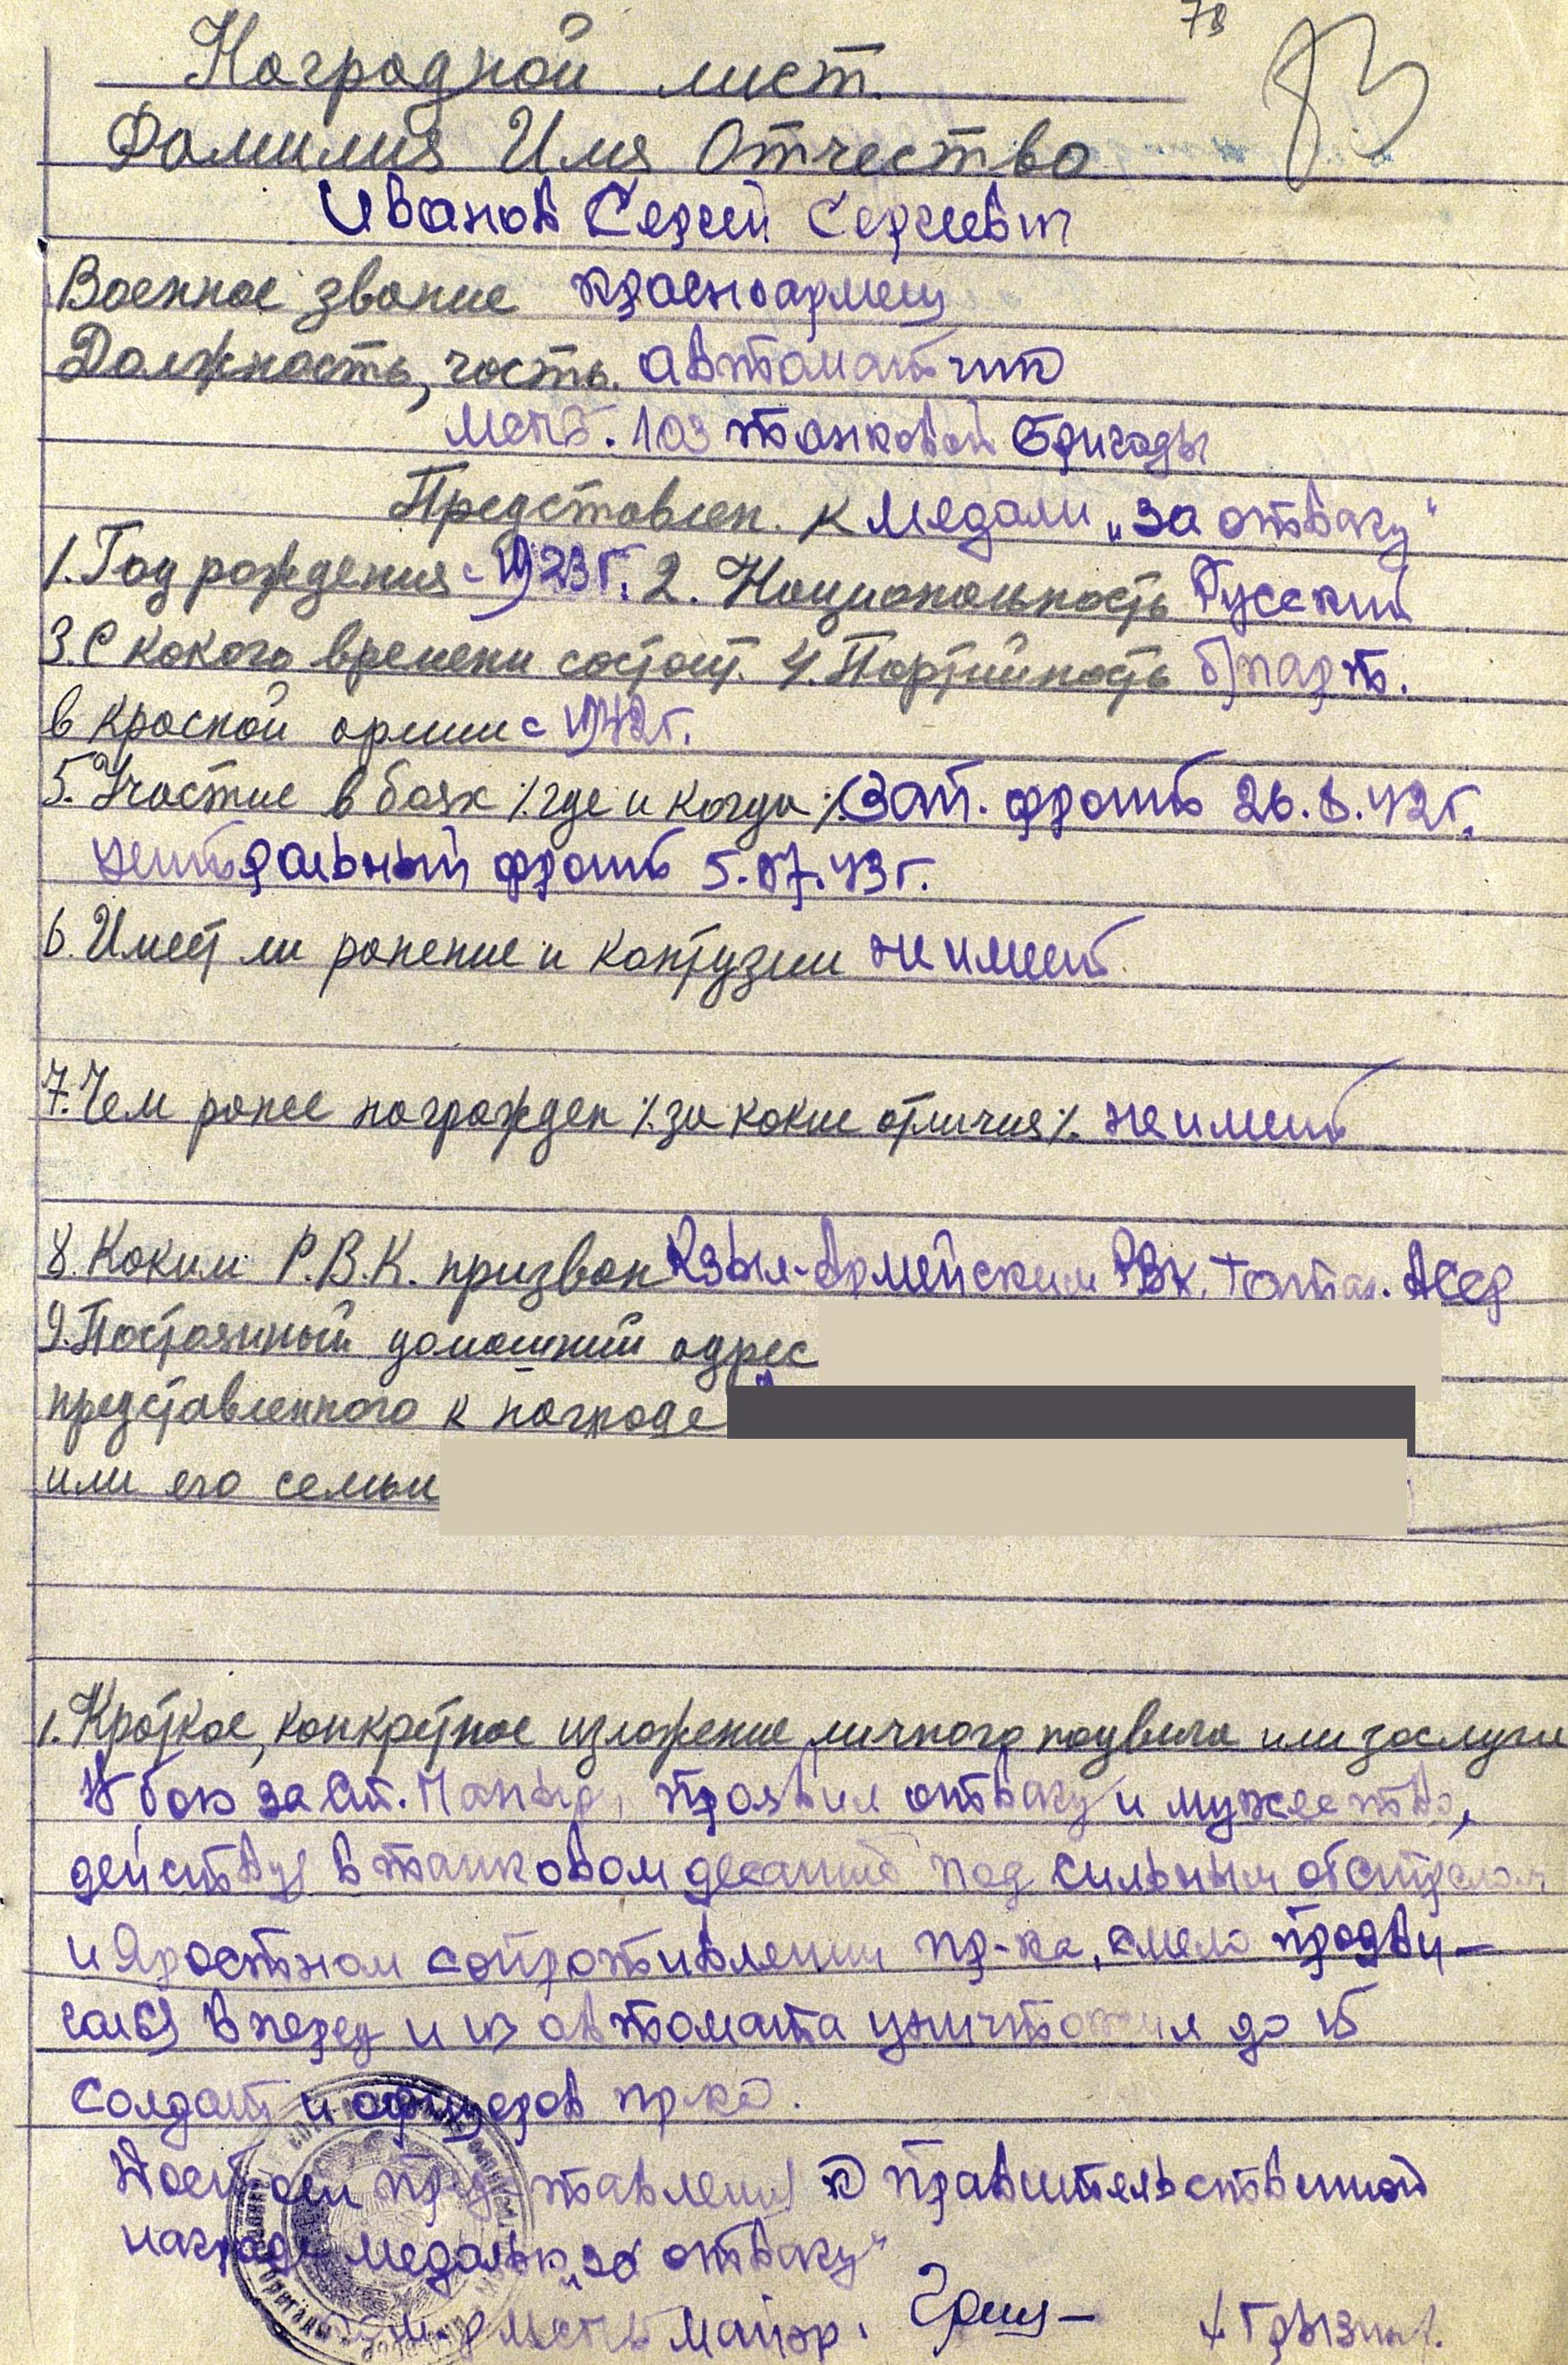 78
83
Наградной лист.
Фамилия Имя Отчество
Иванов Сергей Сергеевич
Военное звание красноармеец
Должность, часть. автоматчик
мспб. 103 танковой бригады
Представлен. к медали „за отвагу“
1. Год рождения с 1923 г. 2. Национальность Русский
3. С какого времени состоит. 4. Партийность б/парт.
в красной армии с 1942 г.
5. Участие в боях /. где и когда /. Зап. фронт 26.8.42 г.
центральный фронт 5.07.43 г.
6. Имеет ли ранение и контузии не имеет.
7. Чем ранее награжден /. за какие отличия /. не имеет
8. Каким Р.В.К. призван Кзыл-Армейским РВК, Татар. АССР
9. Постоянный домашний адрес
представленного к награде
или его семьи
1. Краткое, конкретное изложение личного подвига или заслуги
В бою за ст. проявил отвагу и мужество,
действуя в танковом десанте под сильным обстрелом
и яростном сопротивлении пр-ка, смело продви-
гался вперед и из автомата уничтожил до 15
солдат и офицеров пр-ка.
Достоин представления к правительственной
награде медалью „за отвагу“
мспб майор.